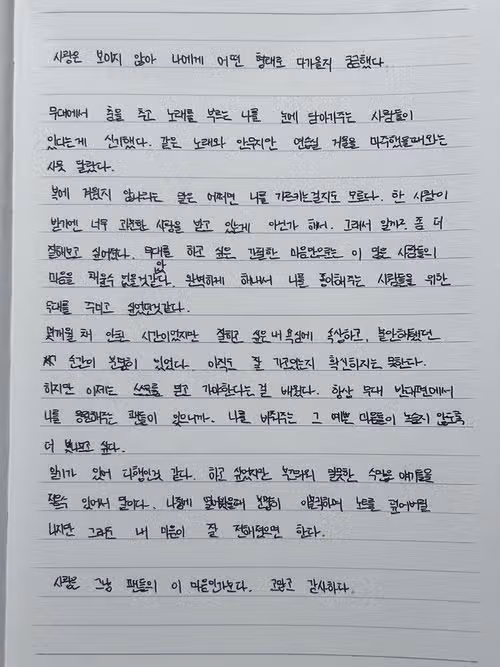 사랑은 보이지 않아 나에게 어떤 형태로 다가올지 궁금했다
무대에서 춤을 추고 노래를 부르는 나를 눈에 담아가주는 사람들이
있다는게 신기했다. 같은 노래와 안무지만 연습실 거울을 마주했을때와는
사뭇 달랐다.
복에 겨웠지 않나라는 말은 어쩌면 나를 가르키는걸지도 모른다. 한 사람이
받기엔 너무 과분한 사랑을 받고 있는게 아닌가 해서. 그래서 일까 좀 더
잘해보고 싶어졌다. 무대를 하고 싶은 간절한 마음만으로는 이 많은 사람들의
마음을 채울수 없을것같았다. 완벽하게 해내서 나를 좋아해주는 사람들을 위한
무대를 주려고 싶었던것같다.
몇개월 채 안된 시간이었지만 잘하고 싶은 내 욕심에 속상하고, 불안해했던
순간이 분명히 있었다. 아직도 잘 가고있는지 확신하지는 못한다.
하지만 이제는 스스로를 믿고 가야한다는 걸 배웠다. 항상 무대 반대편에서
나를 응원해주는 팬들이 있으니까. 나를 비춰주는 그 예쁜 마음들이 녹슬지 않도록
더 빛나보고 싶다.
일기가 있어 다행인것 같다. 하고 싶었지만 눈앞에선 말못한 수많은 얘기들을
적을수 있어서 말이다. 나중에 분명히 노트를 덮어버릴
나지만 그래도 내 마음이 잘 전해졌으면 한다.
사랑은 그냥 팬들의 이 마음인가보다. 고맙고 감사하다.